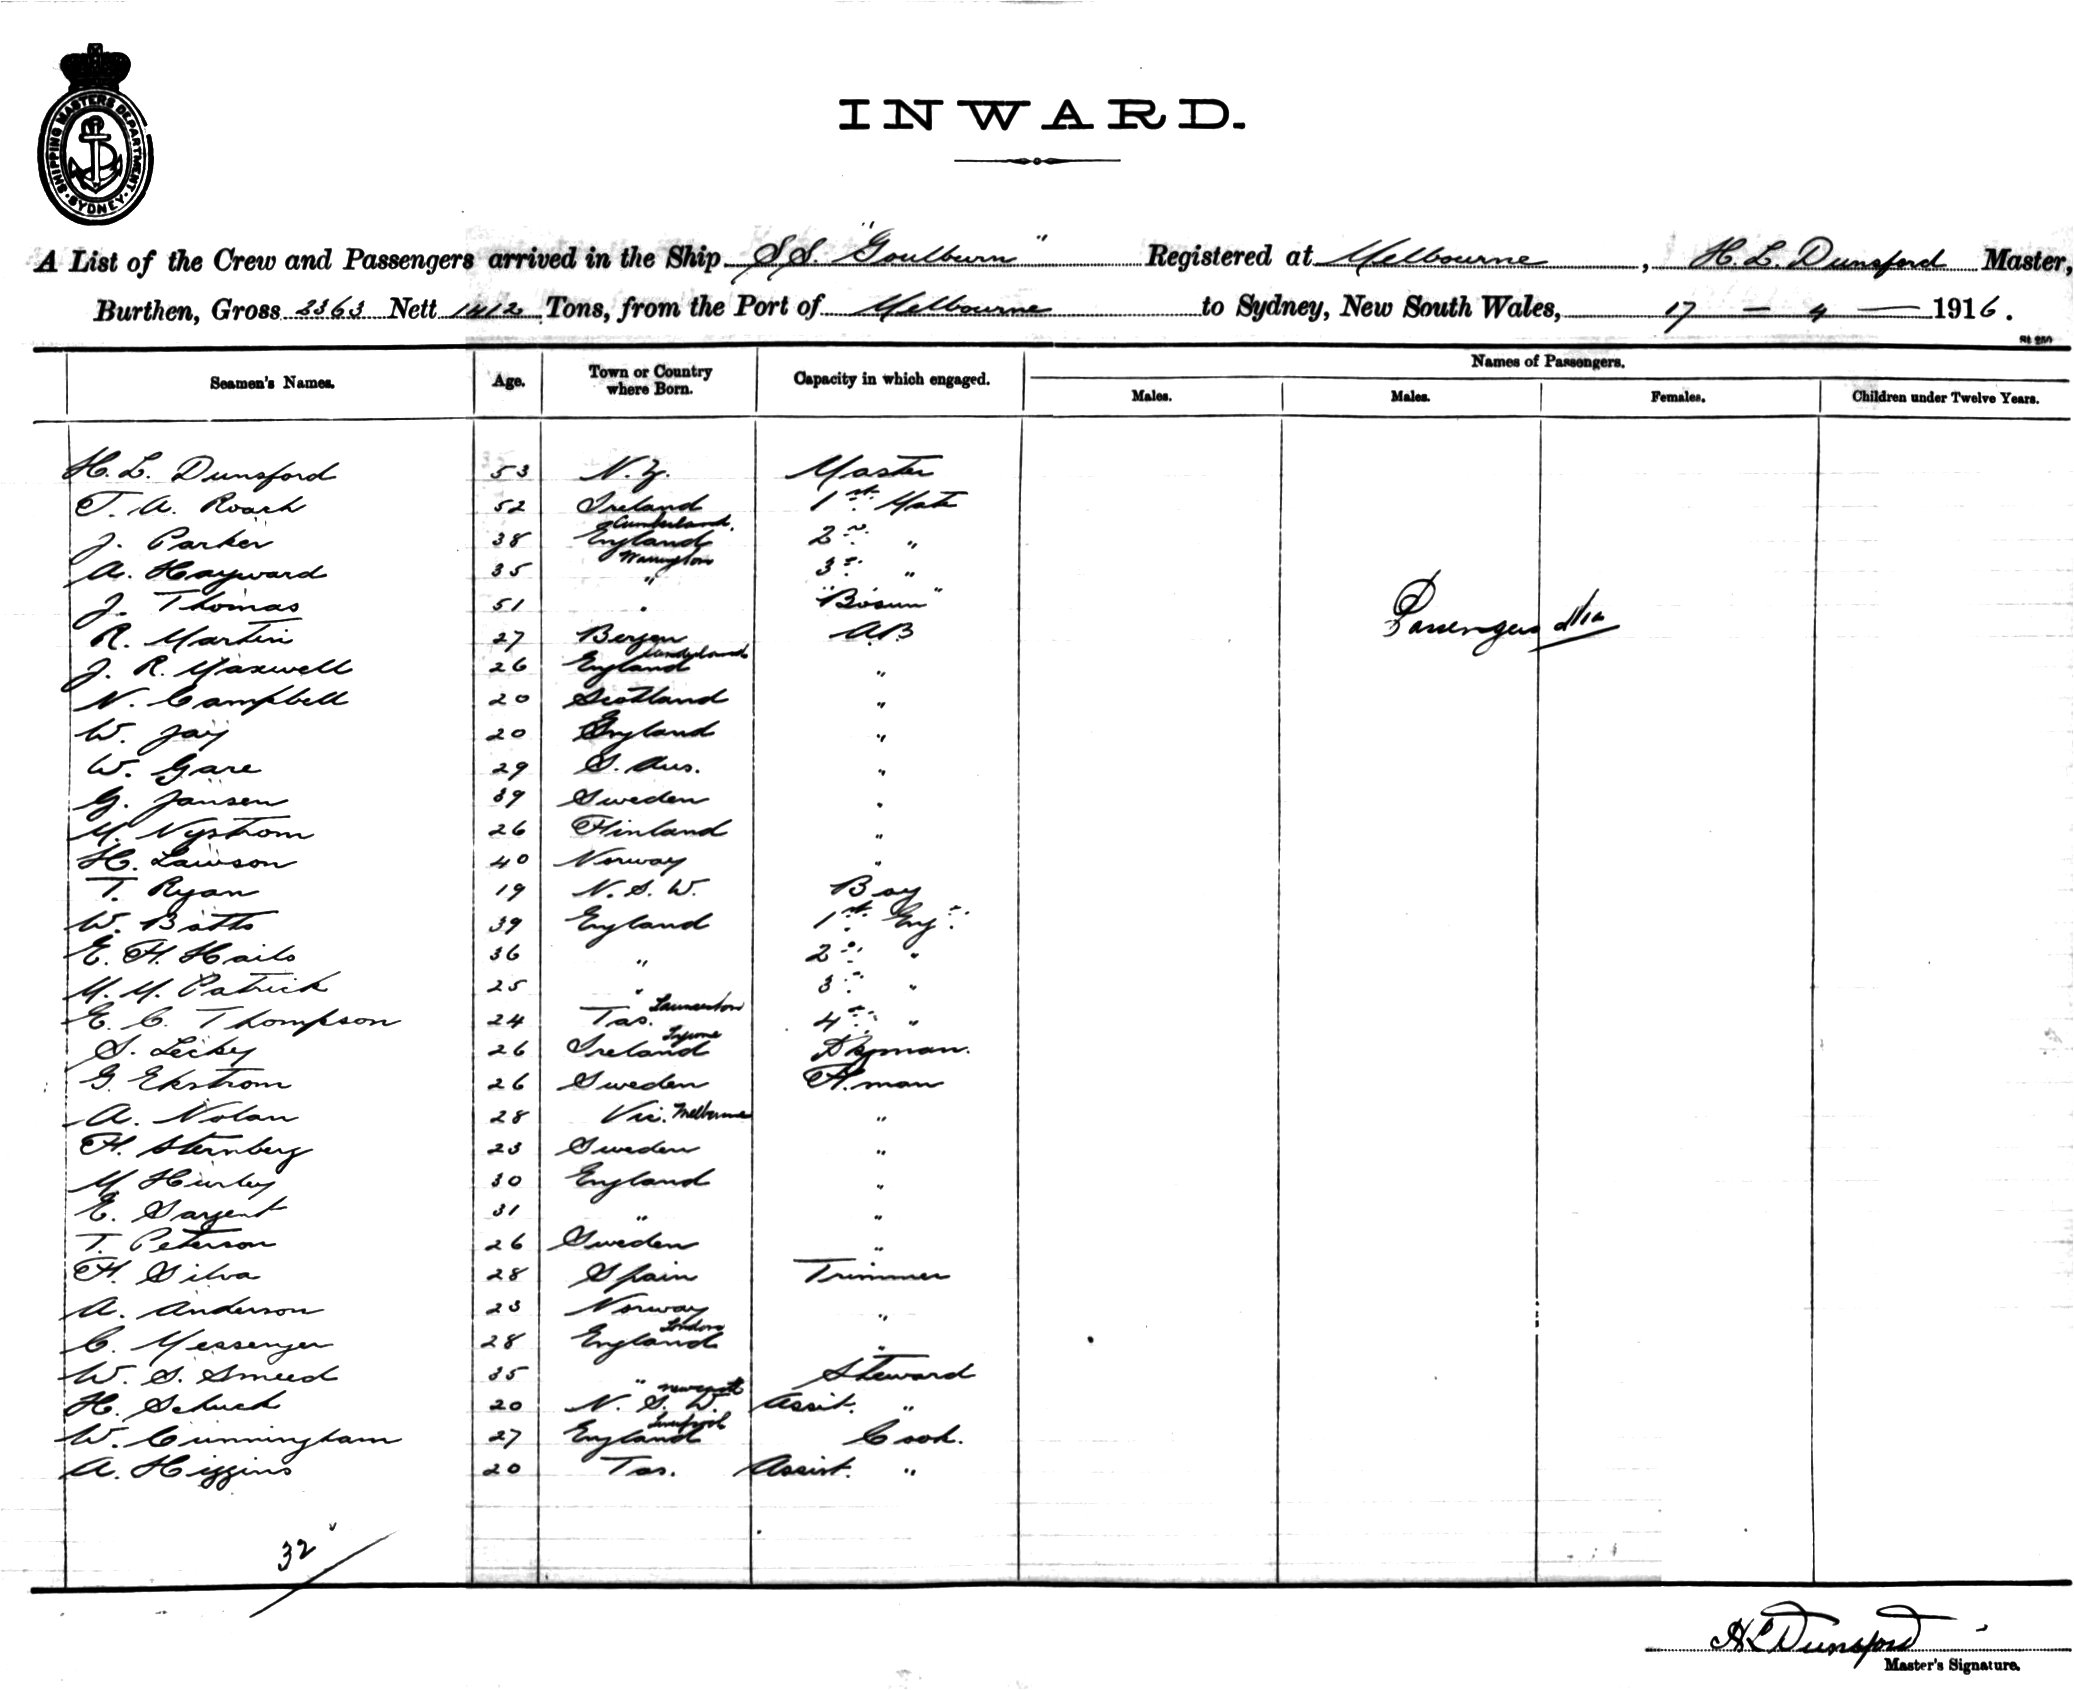 SHIPPING MASTERS DEPARTMENT · SYDNEY ·
INWARD.
A List of the Crew and Passengers arrived in the Ship S.S. "Goulburn" Registered at Melbourne, H. L. Dunsford Master,
Burthen, Gross 2363 Nett 1412 Tons, from the Port of Melbourne to Sydney, New South Wales, 17 - 4 - 1916.
Seamen's Names. Age. Town or Country where Born. Capacity in which engaged. Names of Passengers.
Males. Males. Females. Children under Twelve Years.
H. L. Dunsford 53 N. Z. Master
T. A. Roach 52 Ireland 1st Mate
J. Parker 38 England Cumberland. 2nd "
A. Hayward 35 " Warrington 3rd "
J. Thomas 51 " "Bosun"
R. Martin 27 Bergen A.B.
Passengers Nil
J. R. Maxwell 26 England Sunderland "
N. Campbell 20 Scotland "
W. Jay 20 England "
W. Gare 29 S. Aus. "
G. Jansen 39 Sweden "
M. Nystrom 26 Finland "
H. Lawson 40 Norway "
T. Ryan 19 N. S. W. Boy
W. Batts 39 England 1st Eng.
E. H. Hails 36 " 2nd "
M. M. Patrick 25 " 3rd "
E. C. Thompson 24 Tas. Launceston 4th "
S. Leckey 26 Ireland Tyrone Dkyman.
G. Ekstrom 26 Sweden F.man
A. Nolan 28 Vic. Melbourne "
F. Sternberg 23 Sweden "
M Hurley 30 England "
E. Sargent 31 " "
T. Peterson 26 Sweden "
F. Silva 28 Spain Trimmer
A. Anderson 23 Norway "
C. Messenger 28 England London "
W. S. Smeed 35 " Steward
H. Schuck 20 N. S. W. Newcastle Assit. "
W. Cunningham 27 England Liverpool Cook.
A. Higgins 20 Tas. Assist. "
32
H L Dunsford
Master's Signature.